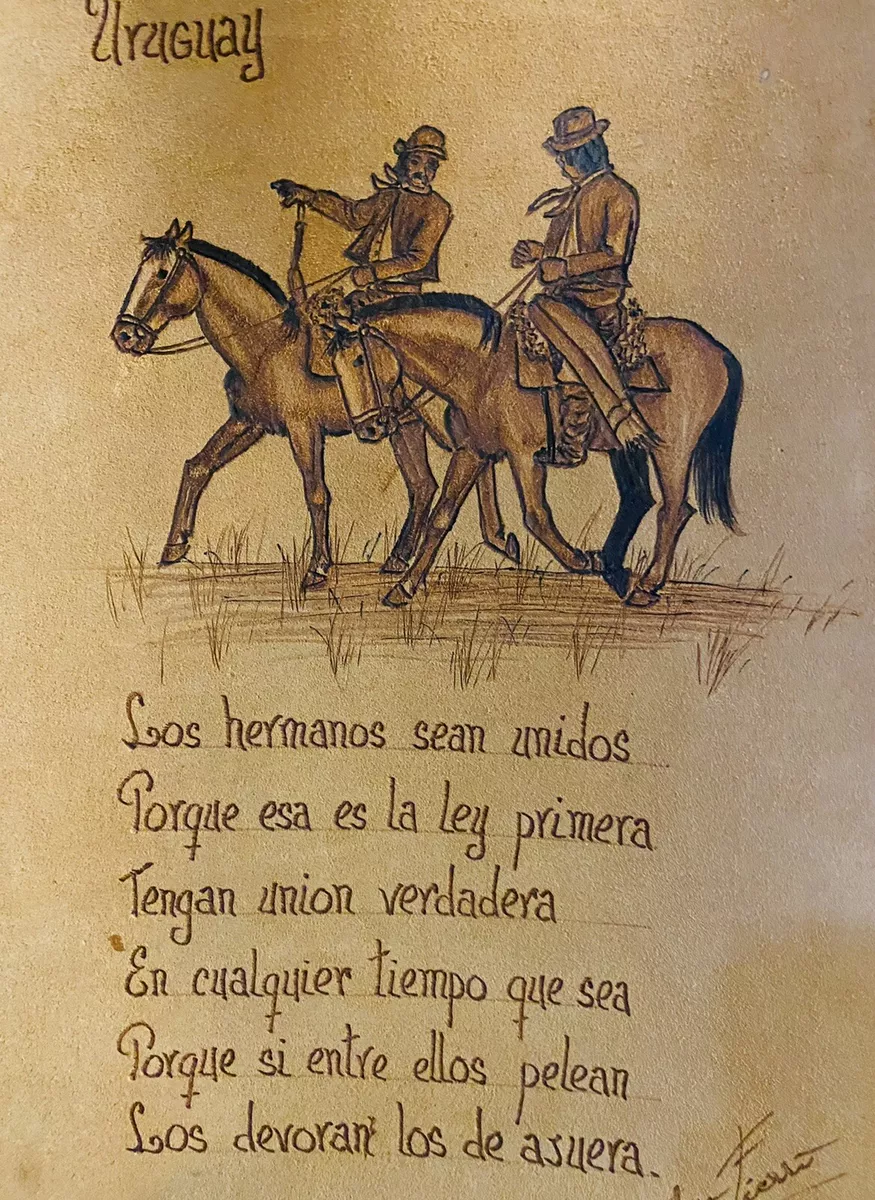 Uruguay
Los hermanos sean unidos
Porque esa es la ley primera
Tengan union verdadera
En cualquier tiempo que sea
Porque si entre ellos pelean
Los devoran los de ajuera.
Fierro